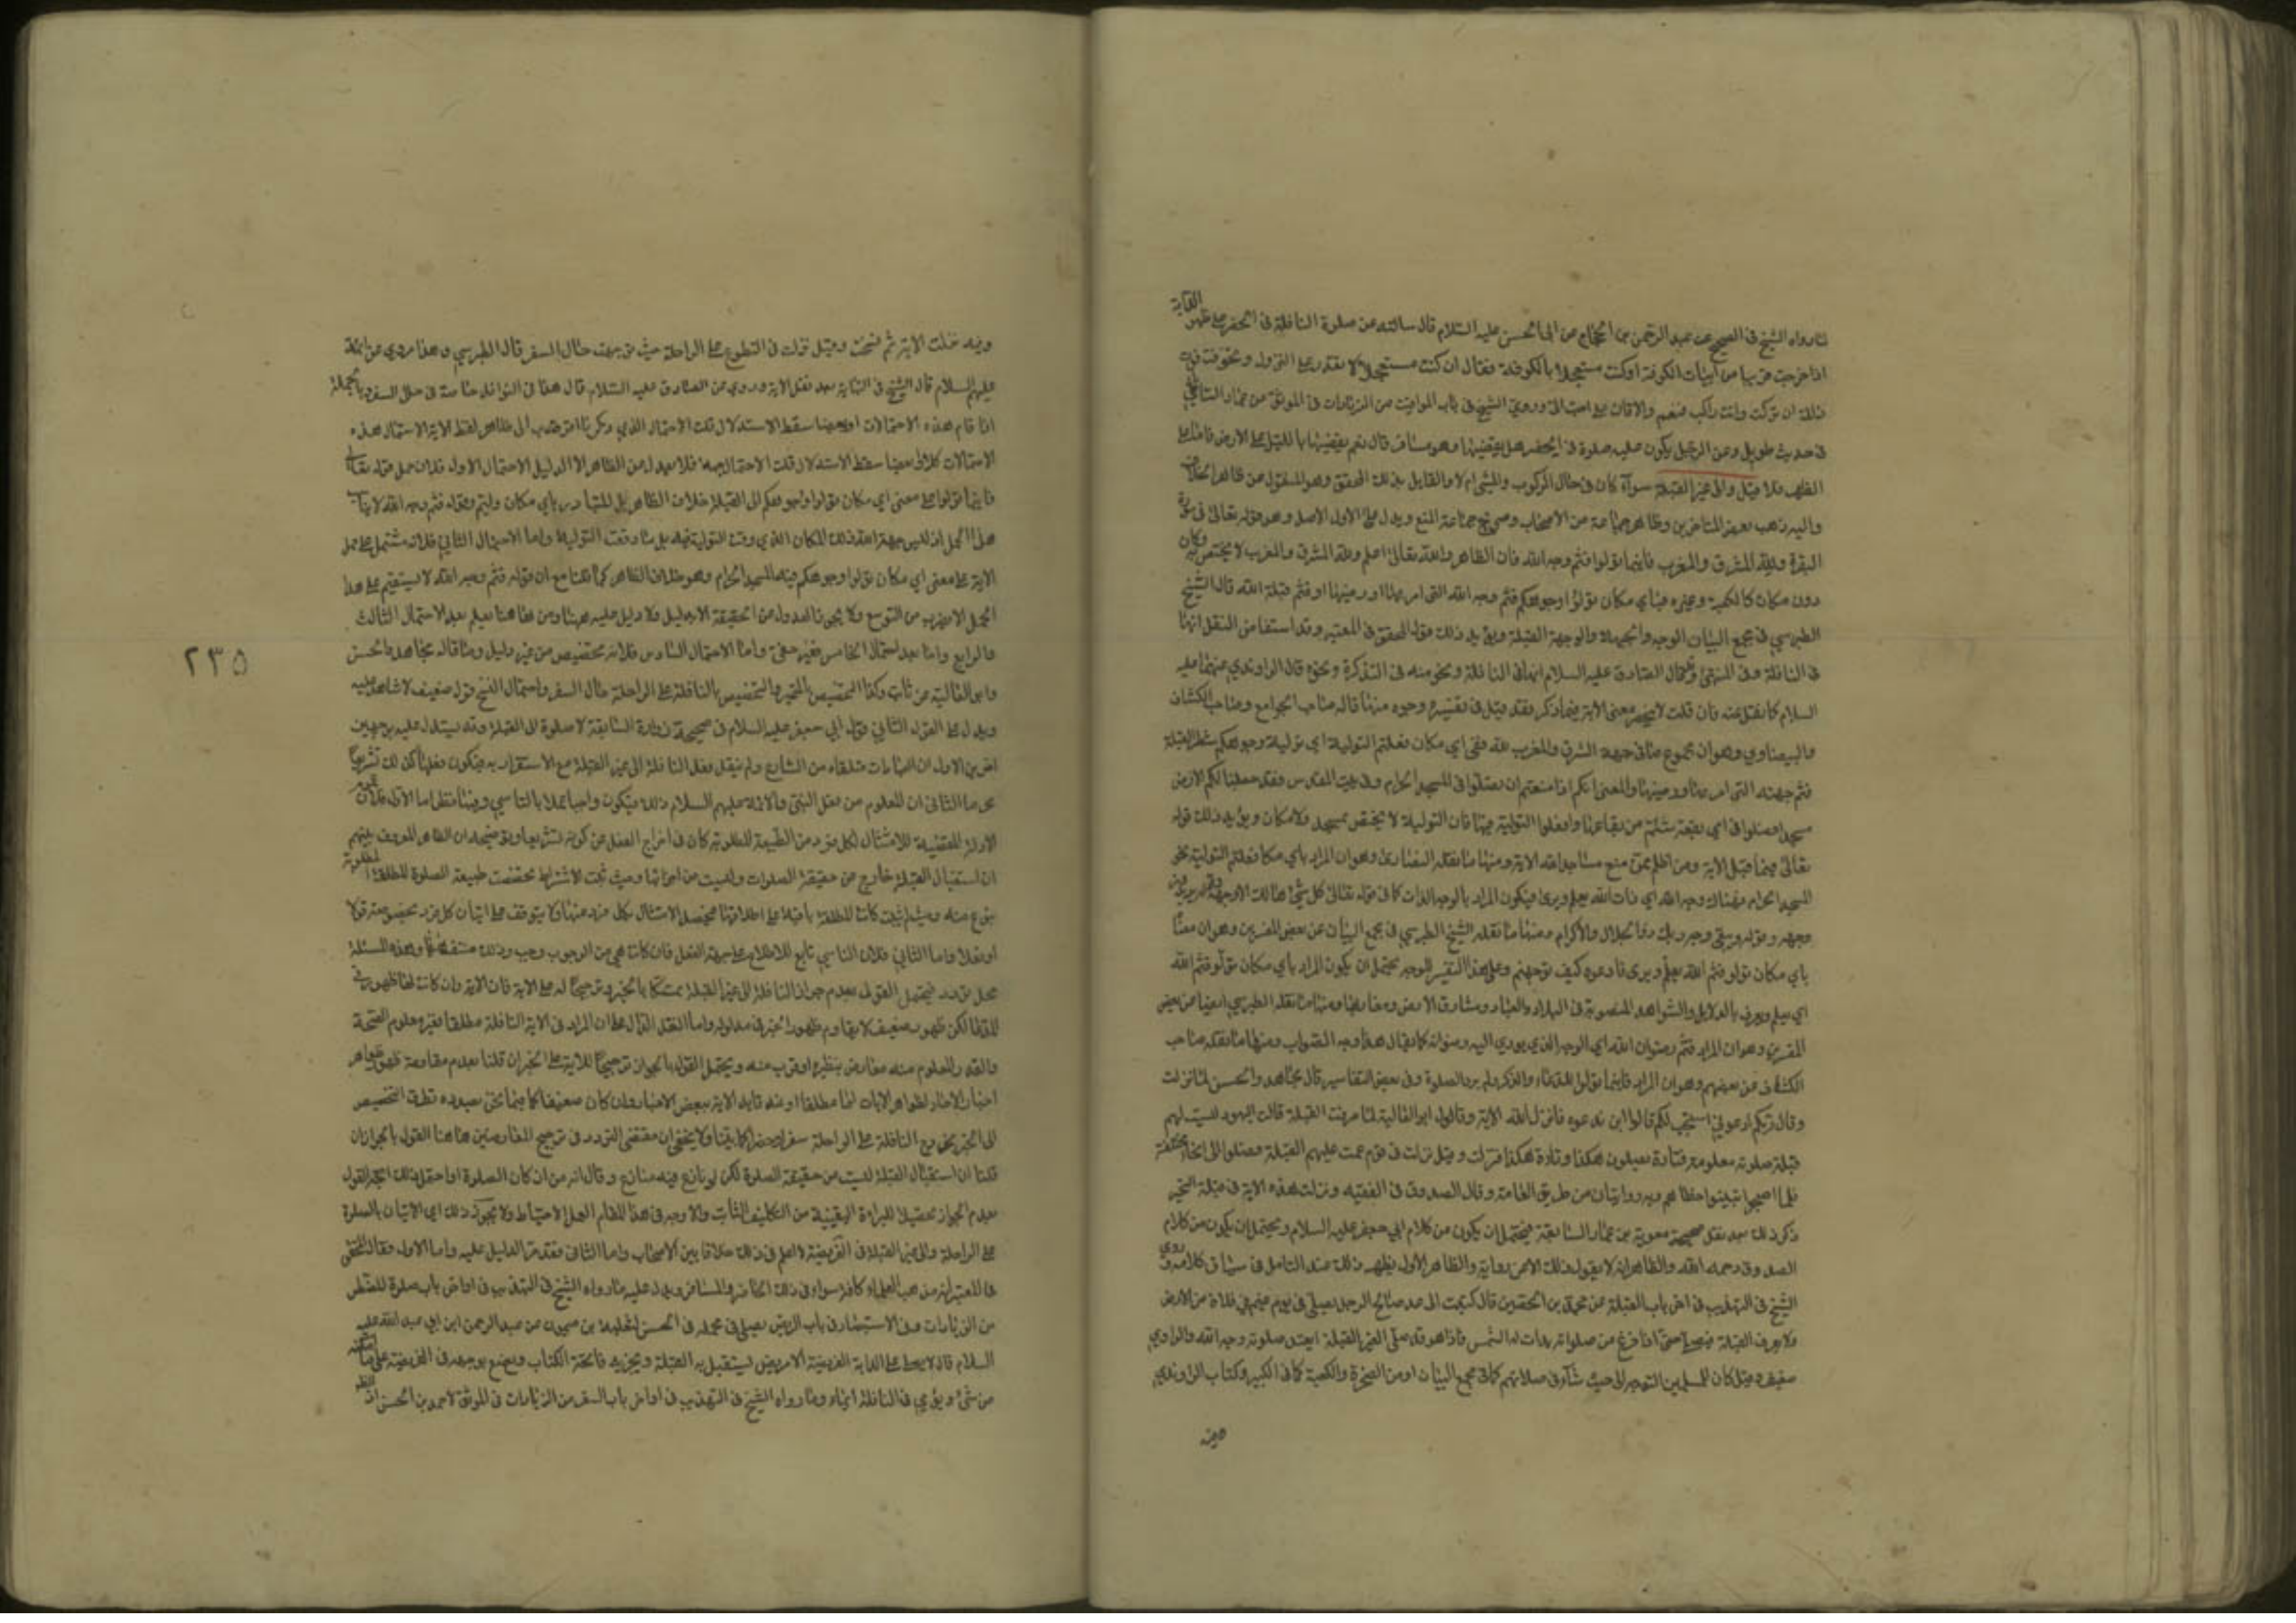 لما رواه الشيخ في الصحيح عن عبد الرحمن بن الحجاج عن ابي الحسن عليه السلام قال سالته عن صلوة النافلة في الحضر على ظهر الدابة
اذا خرجت قريبا من ابيات الكوفة او كنت مستعجلا بالكوفة فقال ان كنت مستعجلا لا تقدر على النزول وتخوفت فوت
ذلك ان تركت وانت راكب فنعم والا فان صلوتك على الارض احب الي وروى الشيخ في باب المواقيت من الزيادات في الموثق عن عمار الساباطي
في حديث طويل وعن الرجل يكون عليه صلوة في الحضر هل يقضيها وهو مسافر قال نعم يقضيها بالليل على الارض فاما على
الظهر فلا قيل والى غير القبلة سوآء كان في حال الركوب والمشي ام لا والقايل بذلك المحقق وهو المنقول عن ظاهر الخلاف
واليه ذهب بعض المتاخرين وظاهر جماعة من الاصحاب وصريح جماعة المنع ويدل على الاول الاصل وهو قوله تعالى في سورة
البقرة ولله المشرق والمغرب فاينما تولوا فثم وجه الله فان الظاهر والله تعالى اعلم ولله المشرق والمغرب لا يختص به مكان
دون مكان كالكعبة وغيره فباي مكان تولوا وجوهكم فثم وجه الله التي امر بها ورضيها او فثم قبلة الله قال الشيخ
الطبرسي في مجمع البيان الوجه والجهة والوجهة القبلة ويؤيد ذلك قول المحقق في المعتبر وقد استفاض النقل انها
في النافلة وفي المنتهى وقد قال الصادق عليه السلام انها في النافلة ونحو منه في التذكرة ونحوه قال الراوندي عنهما عليه
السلام كما نقل عنه فان قلت لا ينحصر معنى الاية فيما ذكر فقد قيل في تفسيره وجوه منها ما قاله صاحب الجوامع وصاحب الكشاف
والبيضاوي وهو ان مجموع ما في جهة الشرق والمغرب لله ففي اي مكان فعلتم التولية اي تولية وجوهكم شطر القبلة
فثم جهته التي امر بها ورضيها والمعنى انكم اذا منعتم ان تصلوا في المسجد الحرام وفي بيت المقدس فقد جعلنا لكم الارض
مسجدا فصلوا في اي بقعة شئتم من بقاعها وافعلوا التولية فيها فان التولية لا يختص بمسجد ولا مكان ويؤيد ذلك قوله
تعالى فيما قبل الاية ومن اظلم ممن منع مساجد الله الاية ومنها ما نقله وهو ان المراد باي مكان فعلتم التولية نحو
المسجد الحرام فهناك وجه الله اي ذات الله يعلم ويرى فيكون المراد بالوجه الذات كما في قوله تعالى كل شيء هالك الا وجهه
وجهه وقوله ويبقى وجه ربك ذو الجلال والاكرام ومنها ما نقله الشيخ الطبرسي في مجمع البيان عن بعض المفسرين وهو ان معناه
باي مكان تولوا فثم الله يعلم ويرى فادعوه كيف توجهتم وعلى هذا التفسير للوجه يحتمل ان يكون المراد باي مكان تولوا فثم الله
اي يعلم ويرى بالدلايل والشواهد المنصوبة في البلاد والعباد ومشارق الارض ومغاربها ومنها ما نقله الطبرسي ايضا عن بعض
المفسرين وهو ان المراد فثم رضوان الله اي الوجه الذي يودي اليه رضوانه كما يقال هذا وجه الصواب ومنها ما نقله صاحب
الكشاف عن بعضهم وهو ان المراد فاينما تولوا للدعاء والذكر ولم يرد الصلوة وفي بعض التفاسير قال مجاهد والحسن لما نزلت
وقال ربكم ادعوني استجب لكم قالوا اين ندعوه فانزل الله الاية وقالوا ابو العالية لما صرفت القبلة قالت اليهود ليست لهم
قبلة صلوته معلومة فتارة يصلون هكذا وتارة هكذا فنزلت وقيل نزلت في قوم عميت عليهم القبلة فصلوا الى انحاء مختلفة
فلما اصبحوا تبينوا خطاهم وبه روايتان من طريق العامة وقال الصدوق في الفقيه ونزلت هذه الاية في قبلة المتحير
ذكر ذلك بعد نقل صحيحة معوية بن عمار السابقة فيحتمل ان يكون من كلام ابي جعفر عليه السلام ويحتمل ان يكون من كلام
الصدوق رحمه الله والظاهر انه لا يقول ذلك الا عن رواية والظاهر الاول يظهر ذلك عند التامل في سياق كلامه وروى
الشيخ في التهذيب في اخر باب القبلة عن محمد بن الحصين قال كتبت الى عبد صالح الرجل يصلي في يوم غيم في فلاة من الارض
ولا يعرف القبلة فيصلي حتى اذا فرغ من صلواته بدت له الشمس فاذا هو قد صلى لغير القبلة ايعتد بصلوته وجه الله والراوي
ضعيف وقيل كان للمسلمين التوجه الى حيث شآؤا في صلاتهم كما في مجمع البيان او من الصخرة والكعبة كما في الكبير وكتاب الراوندي
وفيه
وفيه نزلت الاية ثم نسخت وقيل نزلت في التطوع على الراحلة حيث توجهت حال السفر قال الطبرسي وهذا مروي عن ائمتنا
عليهم السلام قال الشيخ في النهاية بعد نقل الاية وروي عن الصادق عليه السلام قال هذا في النوافل خاصة في حال السفر وبالجملة
اذا قام هذه الاحتمالات او بعضها سقط الاستدلال قلت الاحتمال الذي ذكرنا اقرب الى ظاهر لفظ الاية
الاحتمالات كلا او بعضا سقط الاستدلال قلت فلا يعدل من الظاهر الا لدليل الاحتمال الاول فلان حمل قوله تعالى
فاينما تولوا على معنى اي مكان تولوا وجوهكم الى القبلة خلاف الظاهر بل المتبادر باي مكان وليتم وقوله فثم وجه الله لا يناسب
هذا الحمل اذ ليس جهة الله ذلك المكان الذي وقع التولية فيه بل ما وقعت التولية اليه واما الاحتمال الثاني فلانه مشتمل على حمل
الاية على معنى اي مكان تولوا وجوهكم فيه المسجد الحرام وهو خلاف الظاهر كما قلنا مع ان قوله فثم وجه الله لا يستقيم على هذا
الحمل الا بضرب من التوسع ولا يجوز العدول عن الحقيقة الا بدليل ولا دليل عليه ههنا ومن هذا يعلم بعد الاحتمال الثالث
والرابع واما بعد احتمال الخامس فغير خفي واما الاحتمال السادس فلانه تخصيص من غير دليل وما قاله مجاهد والحسن
وابو العالية غير ثابت وكذا التخصيص بالمتحير والتخصيص بالنافلة على الراحلة حال السفر واحتمال النسخ قول ضعيف لا شاهد عليه
ويدل على القول الثاني قول ابي جعفر عليه السلام في صحيحة زرارة السابقة لا صلوة الا الى القبلة وقد يستدل عليه بوجهين
اخرين الاول ان العبادات متلقاه من الشارع ولم ينقل فعل النافلة الى غير القبلة مع الاستقرار به فيكون فعلها كذلك تشريعا
محرما الثاني ان المعلوم من فعل النبي والائمة عليهم السلام ذلك فيكون واجبا عملا بالتاسي وفيهما نظر اما الاول فلان عموم
الادلة المقتضية للامتثال لكل فرد من الطبيعة المطلوبة كاف في اخراج الفعل عن كونه تشريعا وتوضيحه ان الظاهر المعروف بينهم
ان استقبال القبلة خارج عن حقيقة الصلوات وليست من اجزائها وحيث ثبت الاشتراط تخصصت طبيعة الصلوة المطلقة المطلوبة
بنوع منه وحيث لم يثبت كانت المطلقة باقية على اطلاقها فيحصل الامتثال بكل فرد منها ولا يتوقف على اتيان كل فرد بخصوصه قولا
او فعلا واما الثاني فلان التاسي تابع للاطلاع على جهة الفعل فان كانت هي الوجوب وجب وذلك منتف ههنا وهذه المسئلة
محل تردد فيحتمل القول بعدم جواز النافلة الى غير القبلة تمسكا بالخبر وترجيحا له على الاية فان الاية وان كانت لها ظهور في
المدعا لكن ظهور ضعيف لا يقاوم ظهور الخبر في مدلوله واما النقل الدال على ان المراد في الاية النافلة مطلقا فغير معلوم الصحة
والقدر المعلوم منه معارض بنظيره او قرب منه ويحتمل القول بالجواز ترجيحا للاية على الخبر ان قلنا بعدم مقاومة ظواهر
اخبار الاحاد لظواهر الايات اما مطلقا او عند تاييد الاية ببعض الاخبار وان كان ضعيفا كما فيما نحن بصدده تطرق التخصيص
الى الخبر بخروج النافلة على الراحلة سفرا وحضرا كما بينا ولا يخفى ان مقتضى التردد في ترجيح المتعارضين هاهنا القول بالجواز ان
قلنا ان استقبال القبلة ليست من حقيقة الصلوة لكن لو نازع فيه منازع وقال انه من اركان الصلوة او احتمل ذلك اتجه القول
بعدم الجواز تحصيلا للبراءة اليقينية من التكليف الثابت والاوجه في هذا المقام العمل بالاحتياط ولا يجوز ذلك اي الاتيان بالصلوة
على الراحلة والى غير القبلة في الفريضة لا اعلم في ذلك خلافا بين الاصحاب واما الثاني فقد مر الدليل عليه واما الاول فقال المحقق
في المعتبر انه مذهب العلماء كافة سواء في ذلك الحاضر والمسافر ويدل عليه ما رواه الشيخ في التهذيب في اواخر باب صلوة المضطر
من الزيادات وفي الاستبصار في باب المريض يصلي في محمله في الحسن لثعلبة بن ميمون عن عبد الرحمن ابن ابي عبد الله عليه
السلام قال لا يصلي على الدابة الفريضة الا مريض يستقبل به القبلة ويجزيه فاتحة الكتاب ويضع بوجهه في الفريضة على ما امكنه
من شيء ويومي في النافلة ايماء وما رواه الشيخ في التهذيب في اواخر باب السفر من الزيادات في الموثق لاحمد بن الحسن
٢٣٥